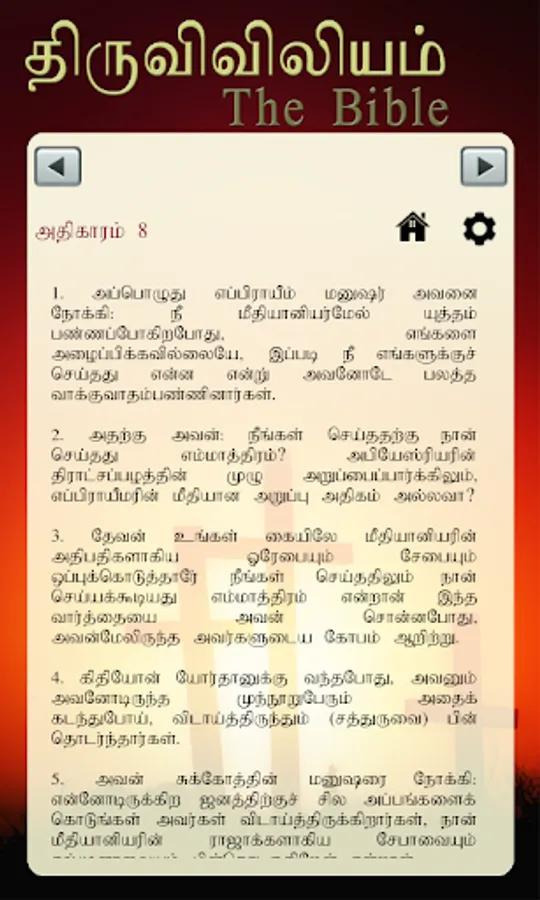 திருவிவிலியம்
The Bible
அதிகாரம் 8
1. அப்பொழுது எப்பிராயீம் மனுஷர் அவனை
நோக்கி: நீ மீதியானியர்மேல் யுத்தம்
பண்ணப்போகிறபோது, எங்களை
அழைப்பிக்கவில்லையே, இப்படி நீ எங்களுக்குச்
செய்தது என்ன என்று அவனோடே பலத்த
வாக்குவாதம்பண்ணினார்கள்.
2. அதற்கு அவன்: நீங்கள் செய்ததற்கு நான்
செய்தது எம்மாத்திரம்? அபியேஸ்ரியரின்
திராட்சப்பழத்தின் முழு அறுப்பைப்பார்க்கிலும்,
எப்பிராயீமரின் மீதியான அறுப்பு அதிகம் அல்லவா?
3. தேவன் உங்கள் கையிலே மீதியானியரின்
அதிபதிகளாகிய ஓரேபையும் சேபையும்
ஒப்புக்கொடுத்தாரே நீங்கள் செய்ததிலும் நான்
செய்யக்கூடியது எம்மாத்திரம் என்றான் இந்த
வார்த்தையை அவன் சொன்னபோது,
அவன்மேலிருந்த அவர்களுடைய கோபம் ஆறிற்று.
4. கிதியோன் யோர்தானுக்கு வந்தபோது, அவனும்
அவனோடிருந்த முந்நூறுபேரும் அதைக்
கடந்துபோய், விடாய்த்திருந்தும் (சத்துருவை) பின்
தொடர்ந்தார்கள்.
5. அவன் சுக்கோத்தின் மனுஷரை நோக்கி:
என்னோடிருக்கிற ஜனத்திற்குச் சில அப்பங்களைக்
கொடுங்கள் அவர்கள் விடாய்த்திருக்கிறார்கள், நான்
மீதியானியரின் ராஜாக்களாகிய சேபாவையும்